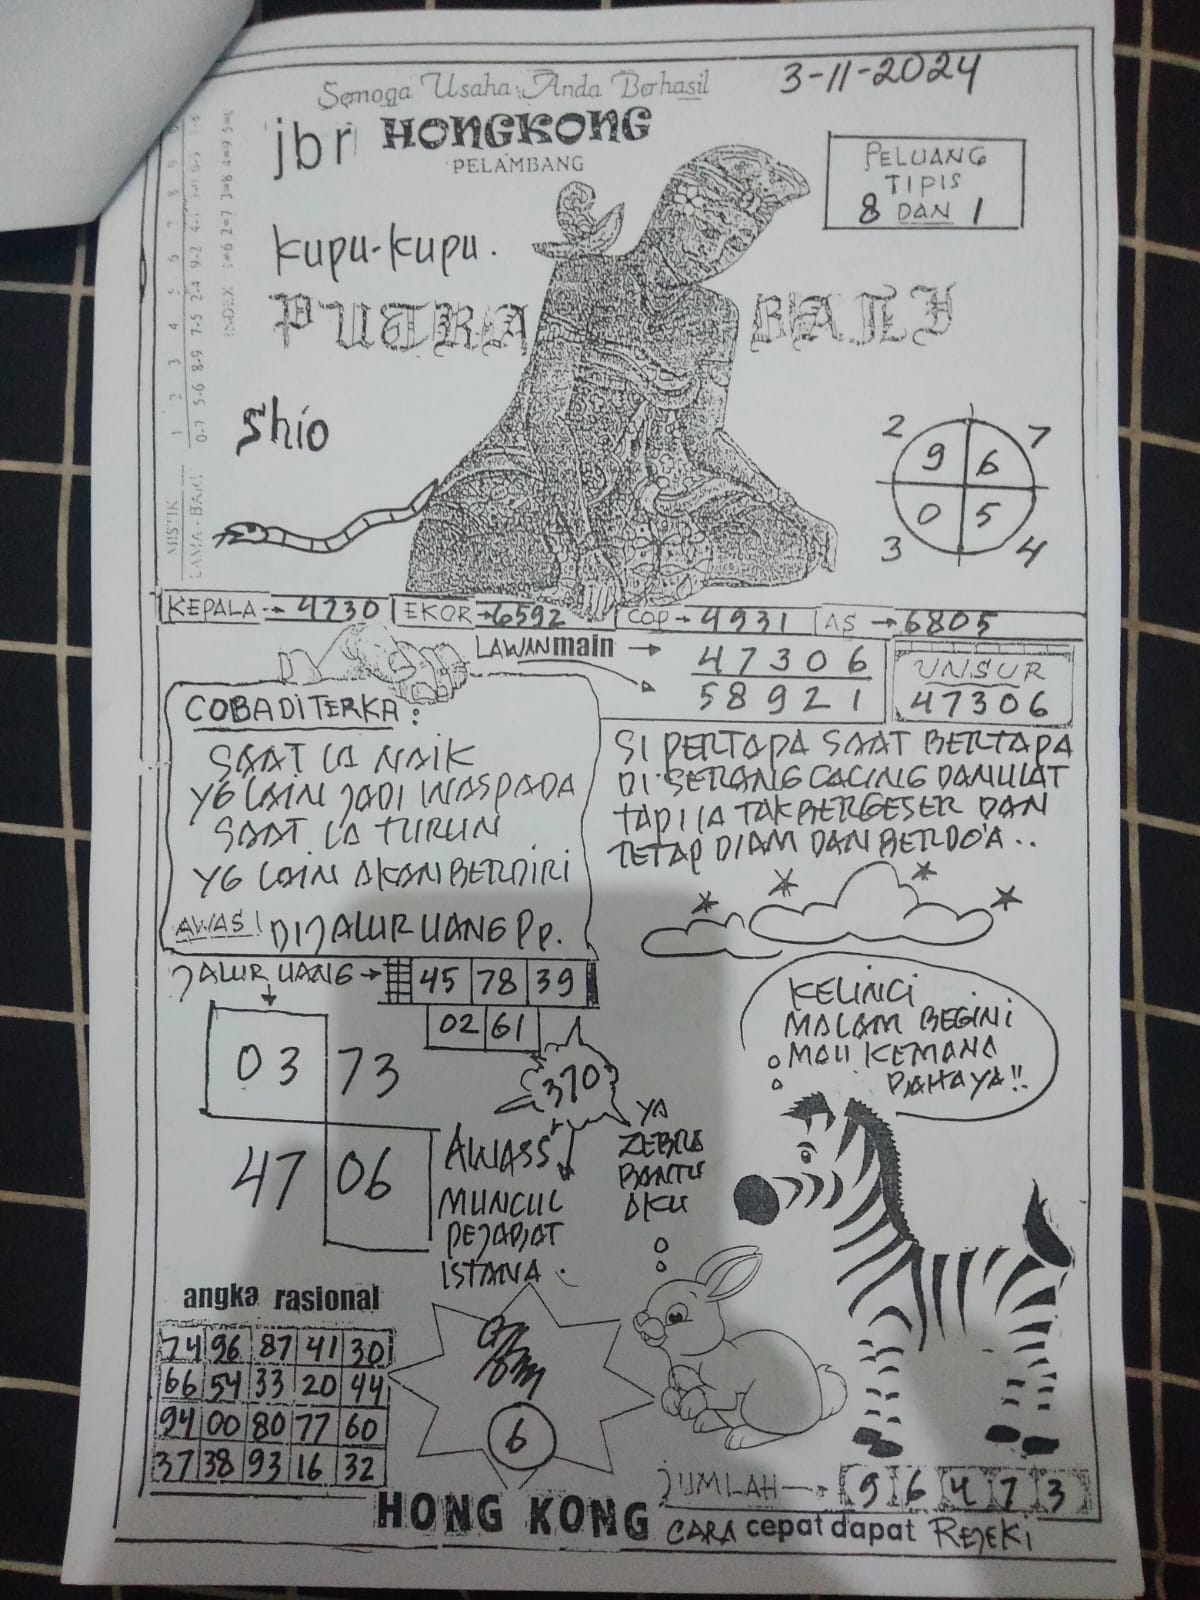 3-11-2024
Semoga Usaha Anda Berhasil
jbr HONGKONG
PELAMBANG
PELUANG
TIPIS
8 DAN 1
Kupu-Kupu.
PUTRA BALI
Shio
2 7
9 6
0 5
3 4
MISTIK 1 2 3 4 5 6 7 8 9
LAMA - BARU 0-7 5-6 8-9 7-5 2-4 9-2
INDEX 1=6 2=7 3=8 4=9 5=
KEPALA → 4730 EKOR → 6592 COP → 4931 AS → 6805
LAWAN main → 47306
58921
UNSUR
47306
COBA DITERKA :
SAAT IA NAIK
YG LAIN JADI WASPADA
SAAT IA TURUN
YG LAIN AKAN BERDIRI
AWAS! DIJALUR UANG Pp.
SI PERTAPA SAAT BERTAPA
DI SERANG CACING DAN ULAT
TAPI IA TAK BERGESER DAN
TETAP DIAM DAN BERDO'A ..
JALUR UANG → 45 78 39
02 61
03 73
47 06
370
AWASS
MUNCUL
PEJABAT
ISTANA.
YA
ZEBRA
BANTU
AKU
KELINCI
MALAM BEGINI
MAU KEMANA
DAHAYA!!
angka rasional
74 96 87 41 30
66 54 33 20 44
94 00 80 77 60
37 38 93 16 32
6
JUMLAH → 9 6 4 7 3
HONG KONG
CARA cepat dapat REJEKI